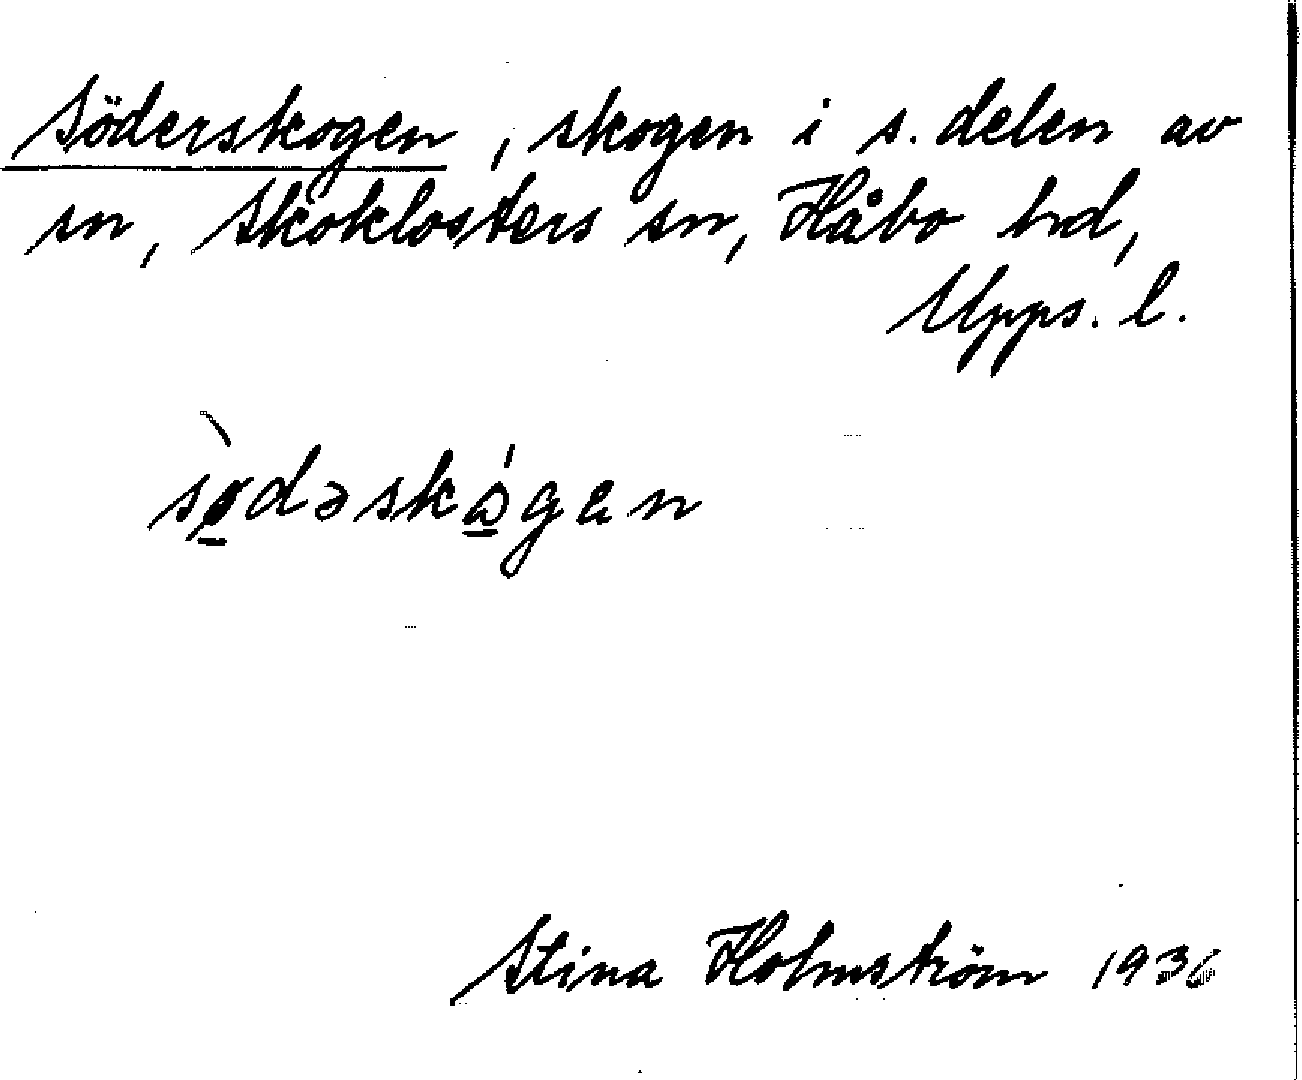 Söderskogen, skogen i s. delen av
sn, Skoklosters sn, Håbo hd,
Upps. l.
sø̀dəskɷ́gen
Stina Holmström 1936